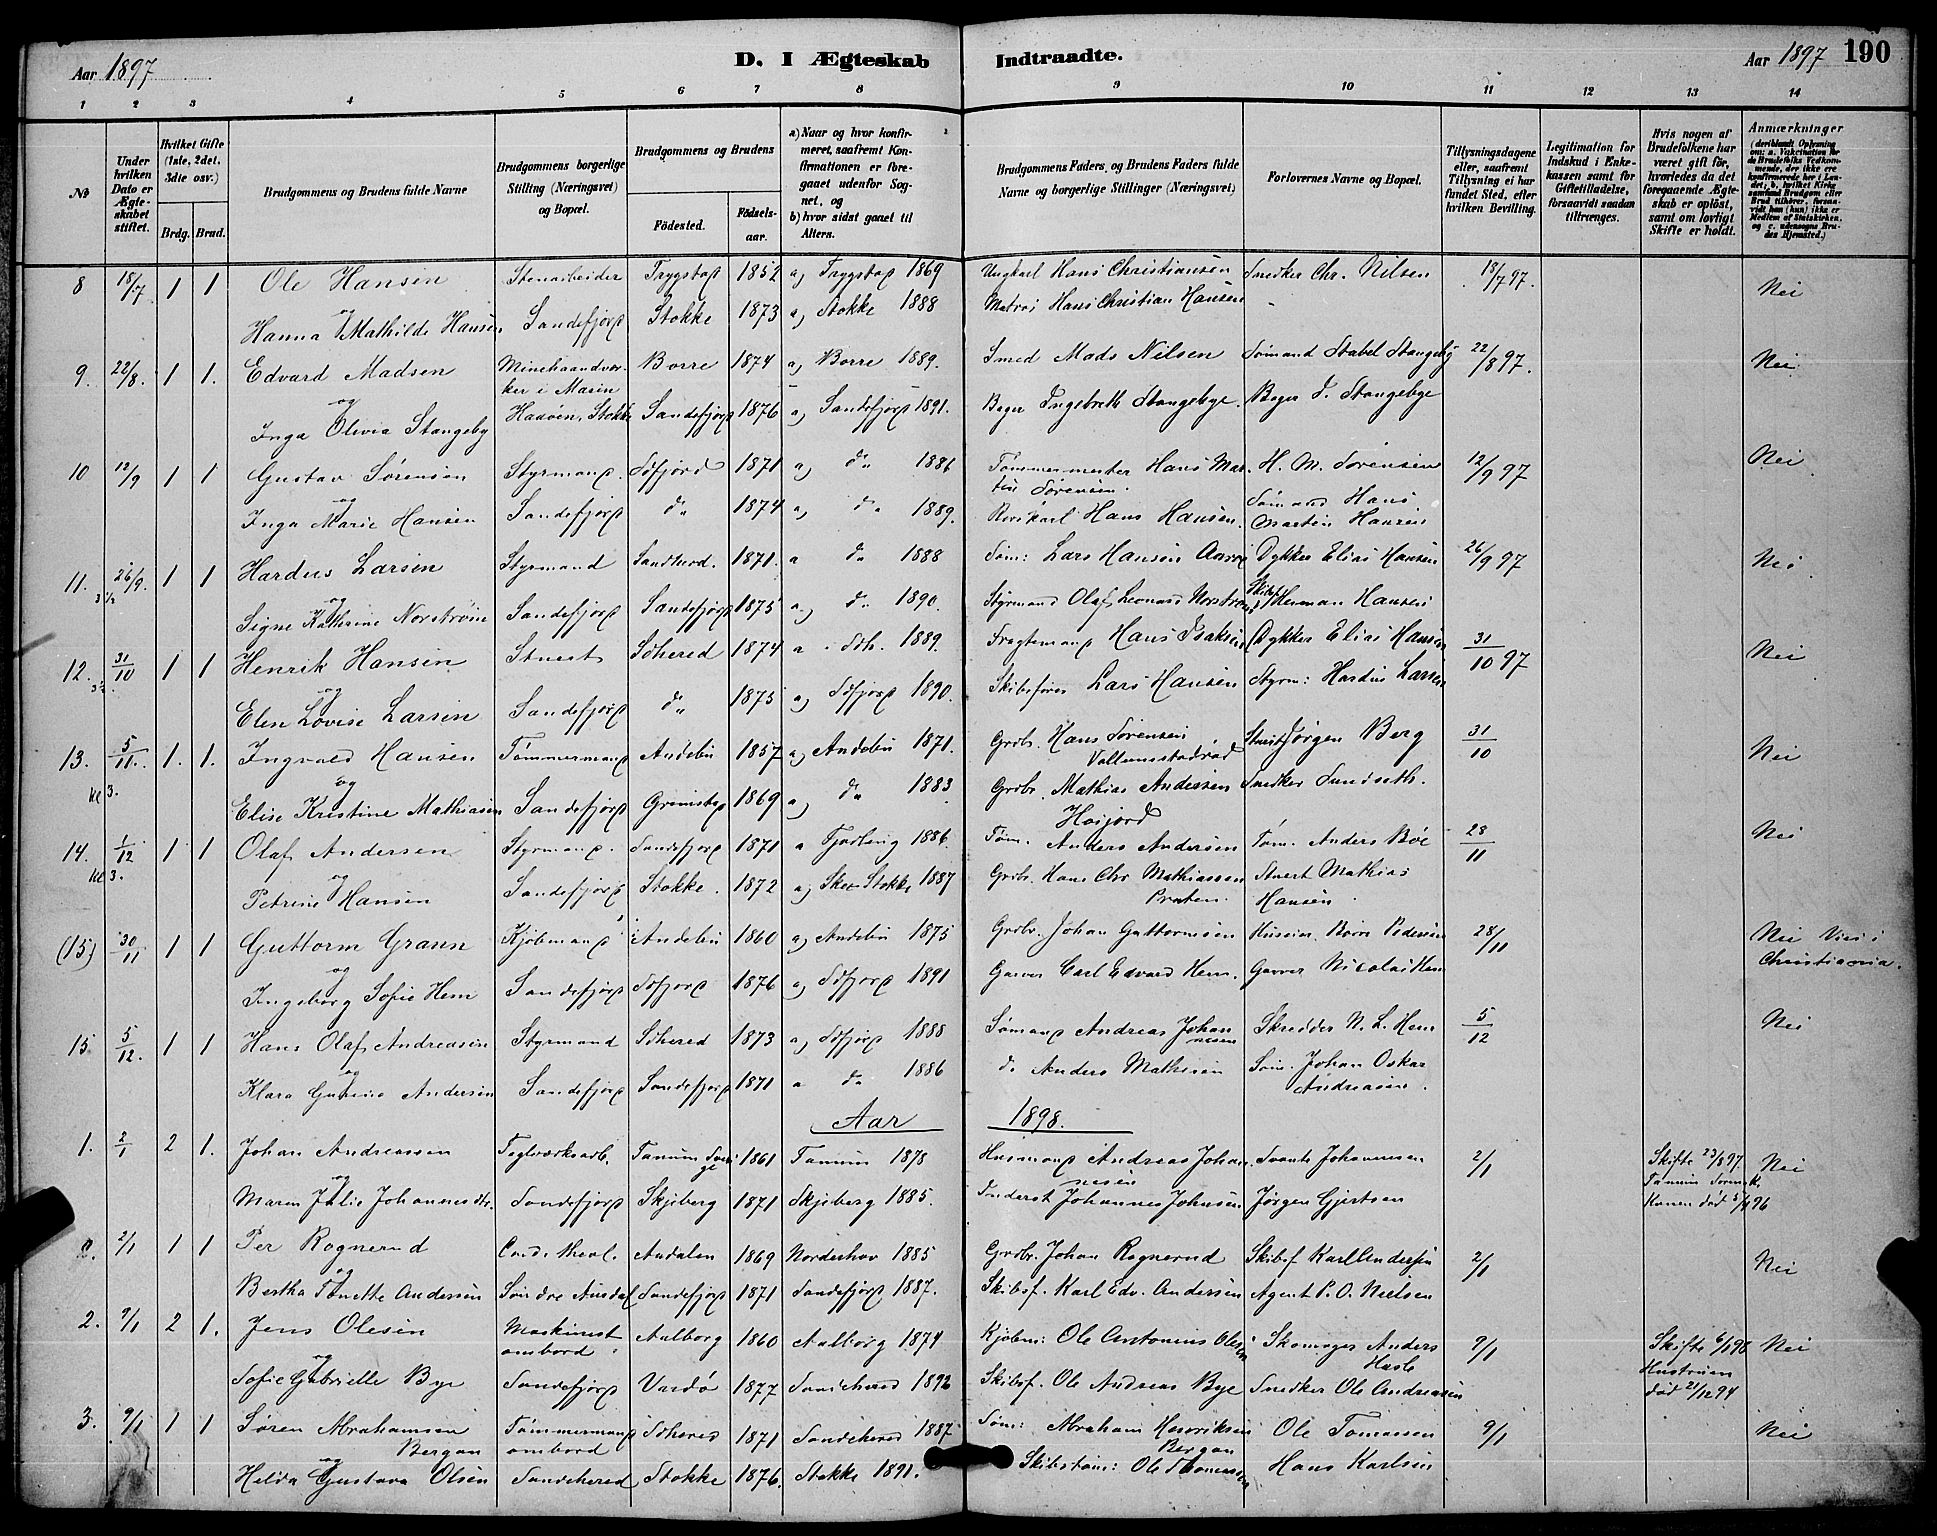 Aar 1897 D. I Ægteskab Indtraadte. Aar 1897 190
1 2 3 4 5 6 7 8 9 10 11 12 13 14
№
Under hvilken Dato er Ægteskabet stiftet.
Hvilket Gifte (1ste, 2det, 3die osv.)
Brdg. Brud.
Brudgommens og Brudens fulde Navne
Brudgommens borgerlige Stilling (Næringsvei) og Bopæl.
Brudgommens og Brudens
Födested. Födselsaar.
a) Naar og hvor konfirmeret, saafremt Konfirmationen er foregaaet udenfor Sognet, og
b) hvor sidst gaaet til Alters.
Brudgommens Faders og Brudens Faders fulde Navne og borgerlige Stillinger (Næringsvei)
Forlovernes Navne og Bopæl.
Tillysningsdagene eller, saafremt Tillysning ei har fundet Sted, efter hvilken Bevilling.
Legitimation for Indskud i Enkekassen samt for Giftetilladelse, forsaavidt saadan tiltrænges.
Hvis nogen af Brudefolkene har været gift för, hvorledes da det foregaaende Ægteskab er oplöst, samt om lovligt Skifte er holdt.
Anmærkninger
8 18/7 1 1 Ole Hansen Stenarbeider Trygstad 1852 a, Trygstad 1869 Ungkarl Hans Christiansen Snedker Chr. Nilsen 18/7 97. Nei
og
Hanna Mathilde Hansen Sandefjord Stokke 1873 a, Stokke 1888 Matros Hans Christian Hansen
9. 22/8. 1 1. Edvard Madsen Borre 1874 a, Borre 1889. Smed Mads Nilsen Sømand Stabel Stangeby 22/8 97. Nei
ker i Marin
og
Inga Olivia Stangeby Stokke Sandefjord 1876 a, Sandefjord 1891. Ingebreth Stangebye. Stangebye
10 12/9 1 1 Gustav Sørensen Styrmand. Sdfjord 1871 a, do 1886 Tømmermester Hans Mar- H. M. Sørensen 12/9 97 Nei
og tin Sørensen.
Inga Marie Hansen Sandefjord do 1874 a, do 1889. Hans Hansen. Sømand Hans Martin Hansen
11. 26/9. 1 1 Hardus Larsen Styrmand Sandherd. 1871. a do 1888 Søm: Lars Hansen Dykker Elias Hansen 26/9 97 Nei
og
Signe Kathrine Norstrøm Sandefjord Sandefjord 1875 a, do 1890. Styrmand Olaf Leonard Norstrøm Herman Hansen
12. 31/10 1 1 Henrik Hansen Stuert Sdhered 1874 a Sdh. 1889. Fragtemand Hans Isaksen Dykker Elias Hansen 31/10 97 Nei
og
Elen Lovise Larsen Sandefjord do 1875 a, Sdfjord 1890. Skibsfører Lars Hansen Styrm: Hardus Larsen
13. 5/11. 1. 1. Ingvald Hansen Tømmermand Andebu 1857 a, Andebu 1871. Grdbr. Hans Sørensen Stuert Jørgen Berg 31/10 Nei
Kl 3. og
Elise Kristine Mathiasen Sandefjord Grimstad 1869 a, do 1883 Grdbr. Mathias Andersen Snedker Sundseth.
14. 1/12 1 1 Olaf Andersen Styrmand. Sandefjord 1871 a Fjortling 1886 Tøm. Anders Andersen Tøm. Anders Bøe 28/11 Nei
Kl 3. og
Petrine Hansen Sandefjord Stokke. 1872 a, Stokke 1887 Grdbr. Hans Chr Mathiassen Stuert Mathias Hansen
(15) 30/11 1 1 Guttorm Grann Kjøbmand Andebu 1860 a, Andebu 1875 Grdbr. Johan Guttormsen Pedersen 28/11 Nei Viet i Christiania.
og
Ingeborg Sofie Hem Sandefjord Sdfjord 1876 a, Sdfjord 1891 Garver Carl Edvard Hem. Garver Nicolai Hem
15 5/12. 1 1 Hans Olaf Andreasen Styrmand Sdhered 1873 a, Sdfjord 1888 Sømand Andreas Johannesen Skredder N. L. Hem 5/12 Nei
og
Klara Andersen Sandefjord Sandefjord 1871 a do 1886 do Anders Mathisen Søm. Johan Oskar Andreasen.
Aar 1898.
1. 2/1 2 1. Johan Andreassen Teglværksarb. Tanum 1861 Tanum 1878 Husmand Andreas Johannesen Svante Johannesen 2/1 Skifte 23/8 97. Nei
og
Maren Julie Johannesdtr. Sandefjord Skjeberg 1871 Skjeberg 1885. Inderst Johannes Johnsen Jørgen Gjertsen Konen død
2. 2/1 1 1 Per Rognerud Cand. theol. Aadalen 1869 Norderhov 1885 Grdbr. Johan Rognerud Skibsf Karl Andersen 2/1 Nei
og
Bertha Tonette Andersen Søndre Sandefjord 1871 Sandefjord 1887. Skibsf. Karl Edv. Andersen Agent P. O. Nielsen
2. 9/1 2 1. Jens Olesen Maskinist ombord. Aalborg 1860 Aalborg 1874 Kjøbm: Ole Antonius Olesen Skomager Anders Hasle 9/1 Skifte Nei
og
Sofie Gabrielle Bye Sandefjord Vardø 1877 Sandehered 1892 Skibsf. Ole Andreas Bye Snedker Ole Andreasen Hustruen død 21/12 94
3. 9/1 1 1 Søren Abrahamsen Bergan Tømmermand ombord Sdhered 1871 Sandehered 1887. Søm: Abraham Henriksen Bergan Ole Tomassen 9/1 Nei
og
Helda Gustava Olsen Sandehered Stokke 1876. Stokke 1891. Skibstøm: Ole Thomassen Hans Karlsen